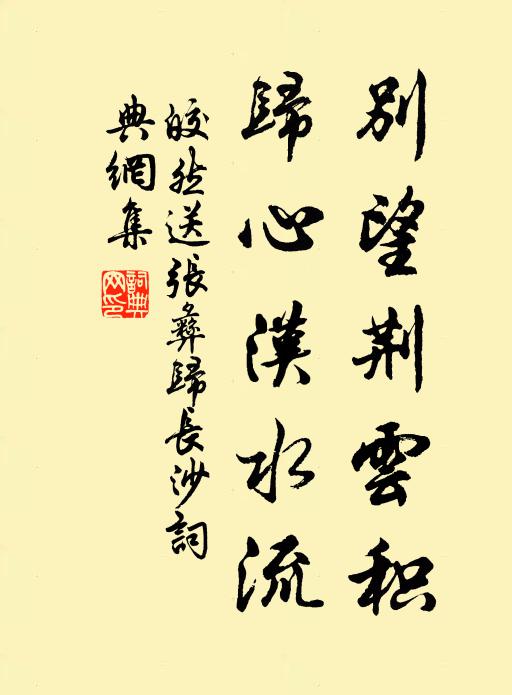 別望荆雲积
歸心漢水流
皎然送張彝歸長沙詞
典網集
詞典网印